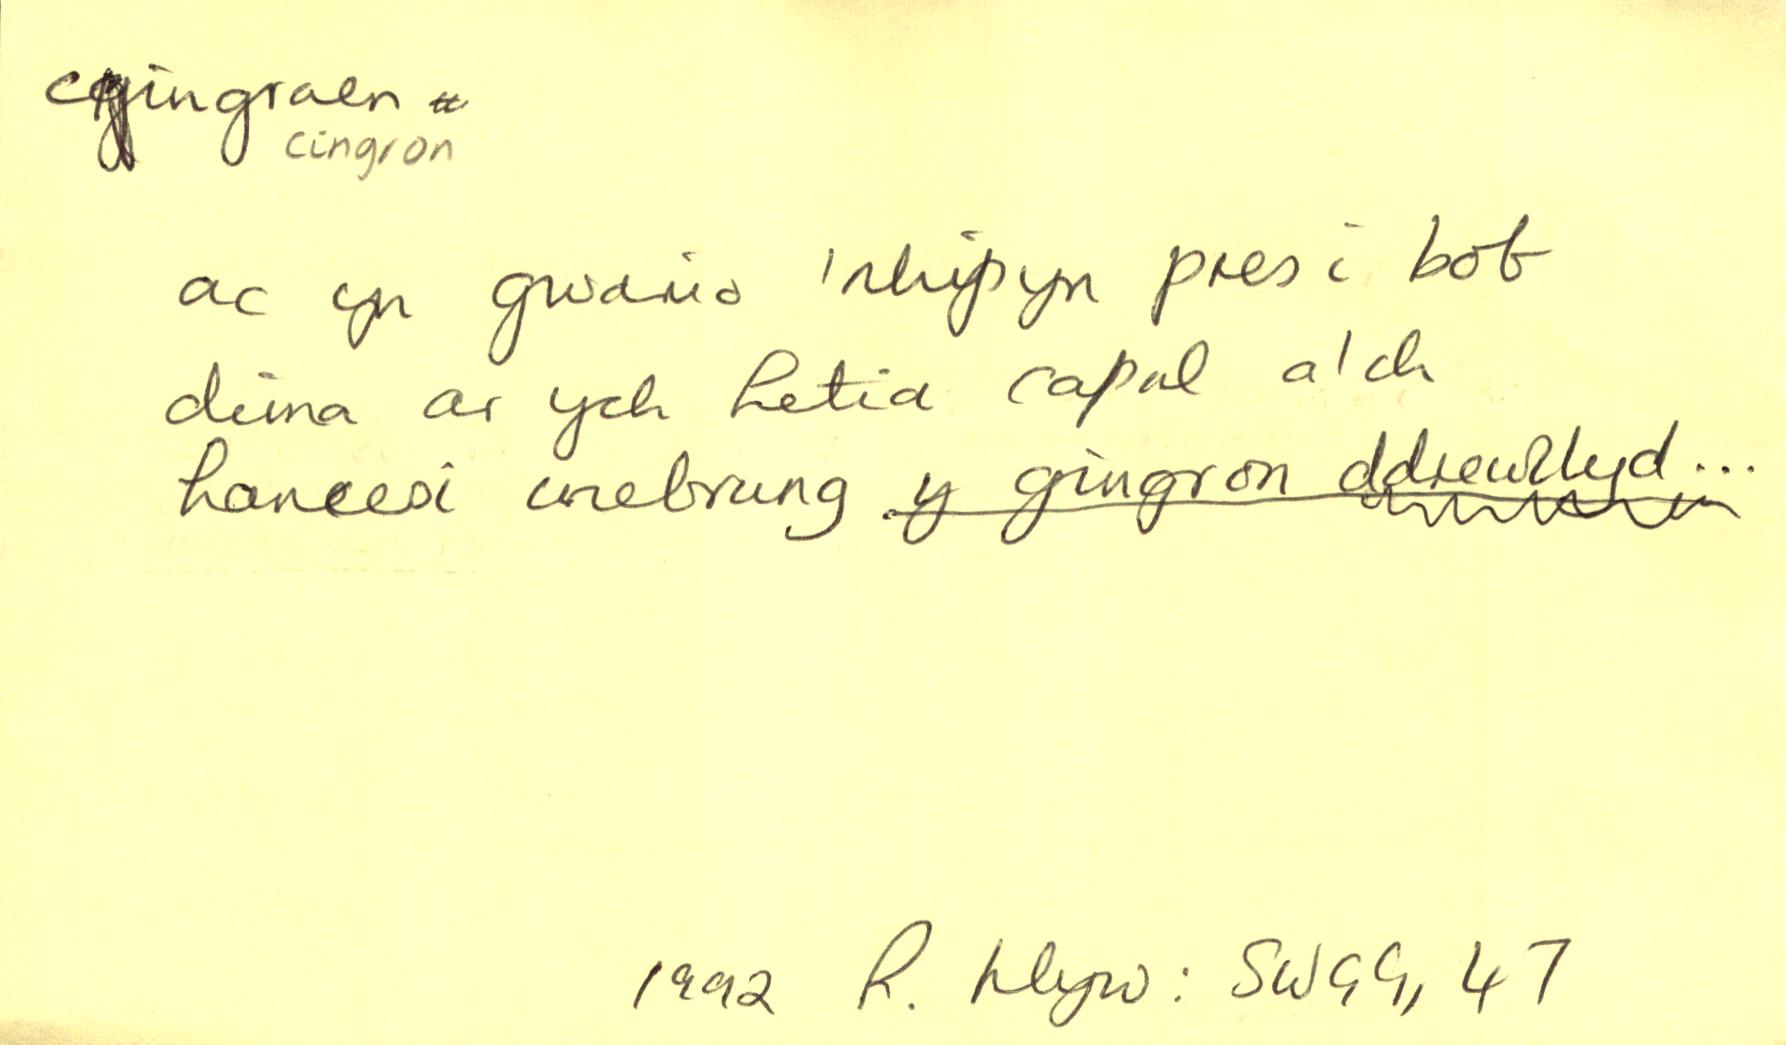 cingraen #
cingron
ac yn gwario 'nhipyn pres i bob
dima ar ych hetia capal a'ch
hancesi cnebrung y gingron ddrewllyd...
1992 R. Llyw: SWGG, 47